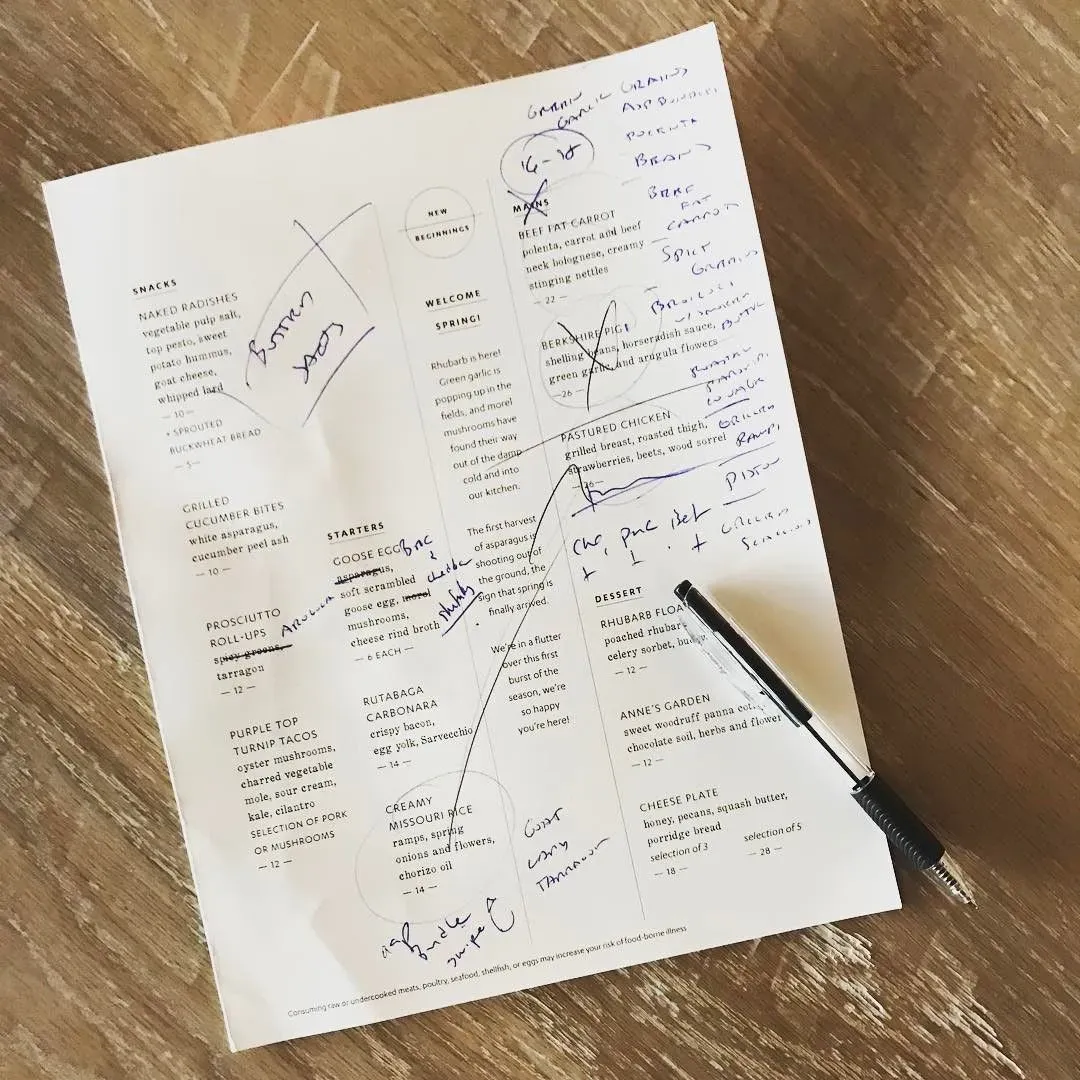 SNACKS
NAKED RADISHES
vegetable pulp salt,
top pesto, sweet
potato hummus,
goat cheese,
whipped lard
— 10 —
• SPROUTED
BUCKWHEAT BREAD
— 5 —
GRILLED
CUCUMBER BITES
white asparagus,
cucumber peel ash
— 10 —
PROSCIUTTO
ROLL-UPS
spicy greens,
ARUGULA
tarragon
— 12 —
PURPLE TOP
TURNIP TACOS
oyster mushrooms,
charred vegetable
mole, sour cream,
kale, cilantro
SELECTION OF PORK
OR MUSHROOMS
— 12 —
STARTERS
GOOSE EGG
asparagus,
soft scrambled
goose egg, morel
mushrooms,
cheese rind broth
— 6 EACH —
RUTABAGA
CARBONARA
crispy bacon,
egg yolk, Sarvecchio
— 14 —
CREAMY
MISSOURI RICE
ramps, spring
onions and flowers,
chorizo oil
— 14 —
NEW
BEGINNINGS
WELCOME
SPRING!
Rhubarb is here!
Green garlic is
popping up in the
fields, and morel
mushrooms have
found their way
out of the damp
cold and into
our kitchen.
The first harvest
of asparagus is
shooting out of
the ground, the
sign that spring is
finally arrived.
We're in a flutter
over this first
burst of the
season, we're
so happy
you're here!
GREEN
GARLIC GRAINS
16-18
POLENTA
BEEF
FAT
CARROT
MAINS
BEEF FAT CARROT
polenta, carrot and beef
neck bolognese, creamy
stinging nettles
— 22 —
BERKSHIRE PIG
shelling beans, horseradish sauce,
green garlic, and arugula flowers
— 26 —
PASTURED CHICKEN
grilled breast, roasted thigh,
strawberries, beets, wood sorrel
— 26 —
GRILLED
RAMPS
GRILLED
DESSERT
RHUBARB FLOA
poached rhubar
celery sorbet,
— 12 —
ANNE'S GARDEN
sweet woodruff panna
chocolate soil, herbs and flower
— 12 —
CHEESE PLATE
honey, pecans, squash butter,
porridge bread
selection of 3
— 18 —
selection of 5
— 28 —
Consuming raw or undercooked meats, poultry, seafood, shellfish, or eggs may increase your risk of food-borne illness